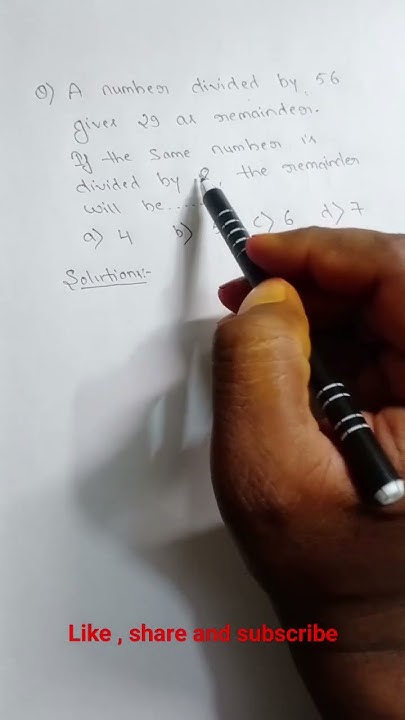 Q) A number divided by 56
gives 29 as remainder.
If the same number is
divided by 8, the remainder
will be......
a) 4 b) c) 6 d) 7
Solution:-
Like , share and subscribe